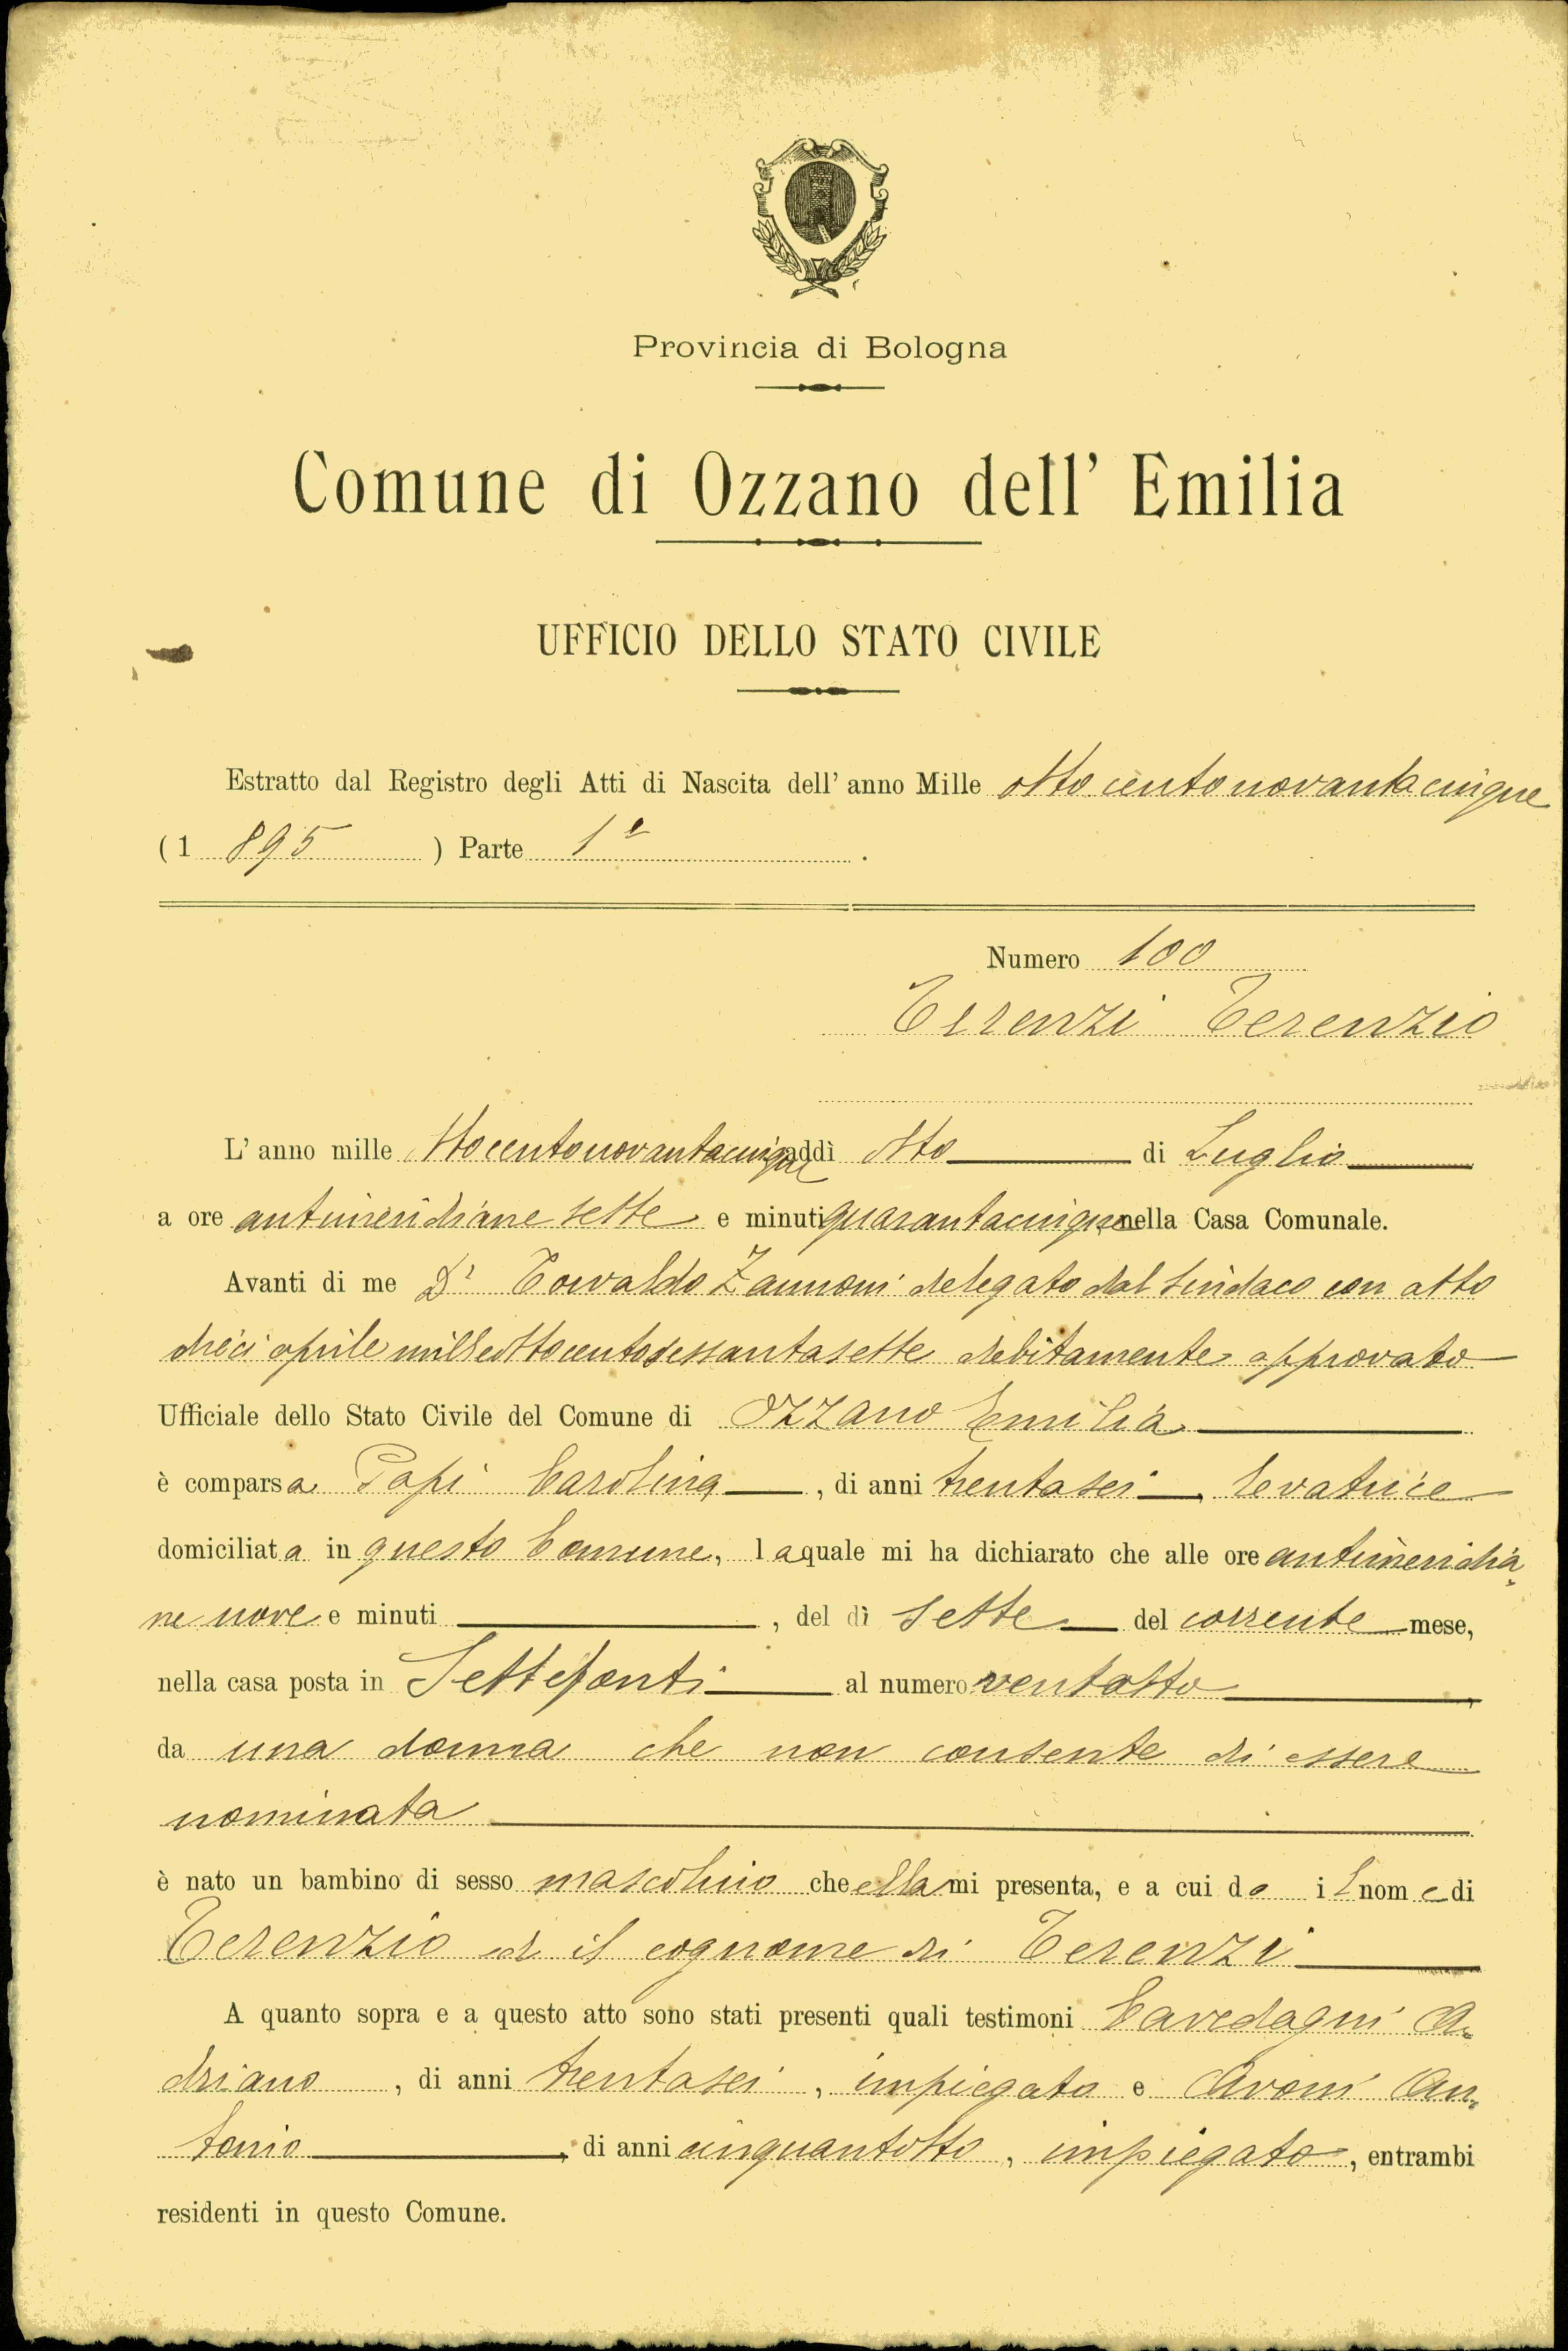 Provincia di Bologna
Comune di Ozzano dell' Emilia
UFFICIO DELLO STATO CIVILE
Estratto dal Registro degli Atti di Nascita dell' anno Mille ottocentonovantacinque
(1 895 ) Parte 1ª .
Numero 100
Terenzi Terenzio
L' anno mille ottocentonovantacinque addì otto di Luglio
a ore antimeridiane sette e minuti quarantacinque nella Casa Comunale.
Avanti di me Dr Torvaldo Zannoni delegato dal Sindaco con atto
dieci aprile milleottocentosessantasette debitamente approvato
Ufficiale dello Stato Civile del Comune di Ozzano Emilia
è comparsa Papi Carolina , di anni trentasei , levatrice
domiciliata in questo Comune, la quale mi ha dichiarato che alle ore antimeridia-
ne nove e minuti , del dì sette del corrente mese,
nella casa posta in Settefonti al numero ventotto ,
da una donna che non consente di essere
nominata
è nato un bambino di sesso mascolino che ella mi presenta, e a cui da il nome di
Terenzio ed il cognome di Terenzi
A quanto sopra e a questo atto sono stati presenti quali testimoni Cavedagni A-
driano , di anni trentasei , impiegato e Avoni An-
tonio , di anni cinquantotto , impiegato , entrambi
residenti in questo Comune.